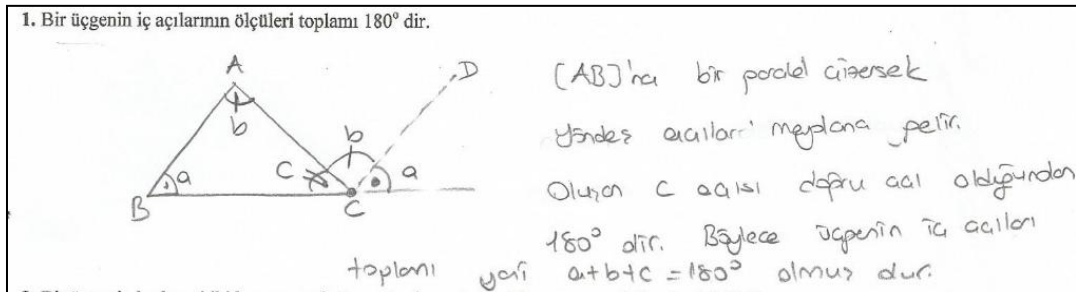 1. Bir üçgenin iç açılarının ölçüleri toplamı 180° dir.
A
D
b
b
a
c
a
B
C
[AB]'na bir paralel çizersek
Yöndeş açıları meydana gelir.
Oluşan C açısı doğru açı olduğundan
180° dir. Böylece üçgenin iç açıları
toplamı yani a+b+c = 180° olmuş dur.